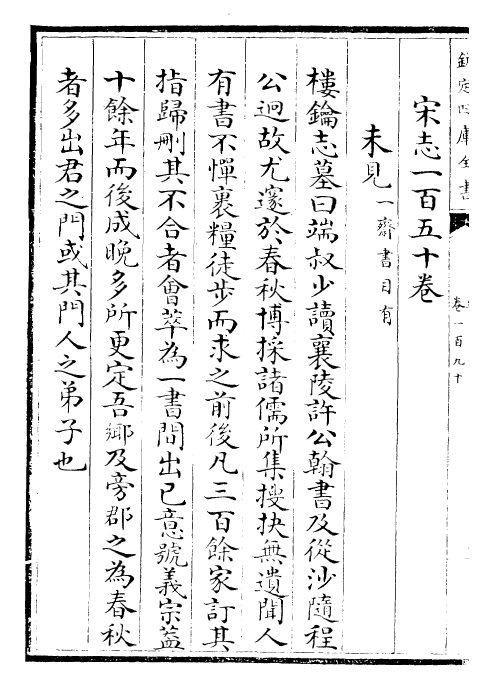 欽定四庫全書
卷一百九十
宋志一百五十卷
未見一齋書目有
樓鑰志墓曰端叔少讀襄陵許公翰書及從沙隨程
公迥故尤邃於春秋博採諸儒所集搜抉無遺聞人
有書不憚裹糧徒步而求之前後凡三百餘家訂其
指歸刪其不合者會萃為一書間出已意號義宗蓋
十餘年而後成晚多所更定吾鄉及旁郡之為春秋
者多出君之門或其門人之弟子也